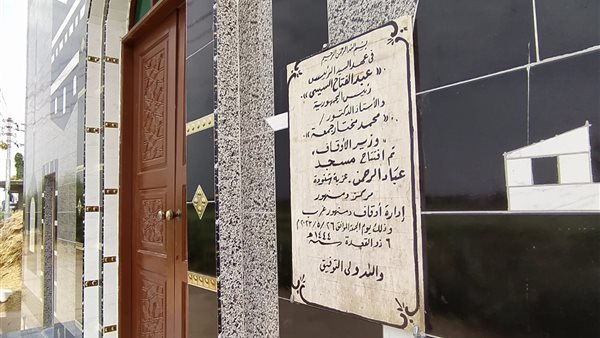 بسم الله الرحمن الرحيم
فى عهد السيد الرئيس
« عبدالفتاح السيسى »
رئيس الجمهورية
والأستاذ الدكتور /
« محمد مختار جمعة »
« وزير الأوقاف »
تم افتتاح مسجد
عباد الرحمن - عزبة شنودة
مركز دمنهور
إدارة أوقاف دمنهور غرب
وذلك يوم الجمعة الموافق ٢٦ / ٥ / ٢٠٢٣م
٦ ذو القعدة سنة ١٤٤٤هـ
والله ولى التوفيق